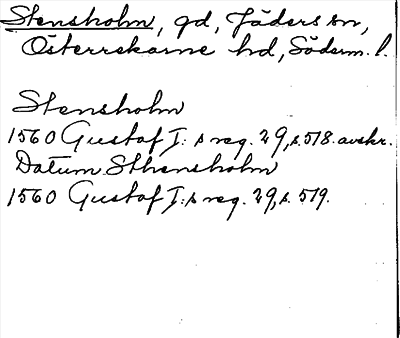 Stensholm, gd, Jäders sn,
Österrekarne hd, Söderm. l.
Stensholm
1560 Gustaf I:s reg. 29, s. 518. avskr.
Datum Sthensholm
1560 Gustaf I:s reg. 29, s. 519.